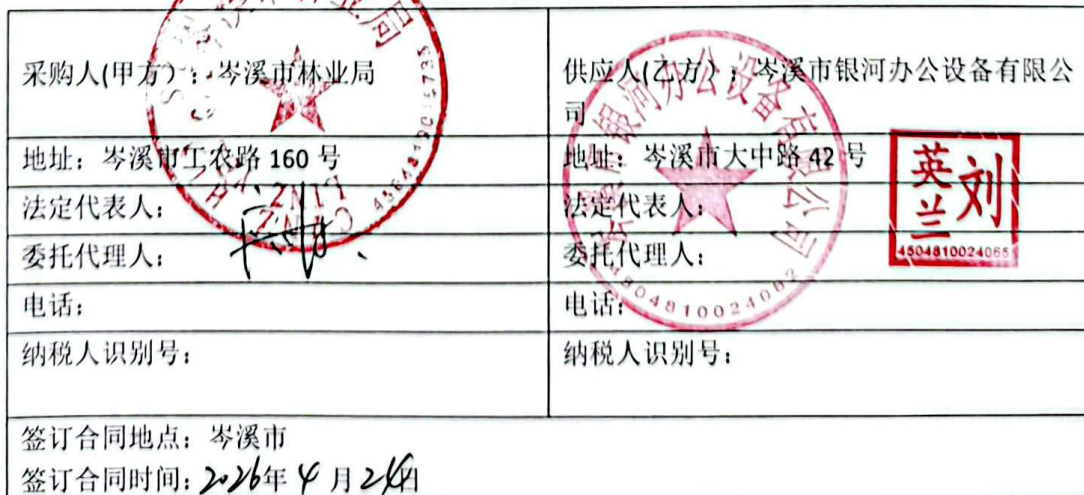 采购人(甲方)：岑溪市林业局
供应人(乙方)：岑溪市银河办公设备有限公
司
地址：岑溪市工农路 160 号
地址：岑溪市大中路 42 号
法定代表人：
法定代表人：
委托代理人：
委托代理人：
电话：
电话：
纳税人识别号：
纳税人识别号：
签订合同地点：岑溪市
签订合同时间：2026年4月24日
岑溪市银河办公设备有限公司
刘英兰
4504810024065